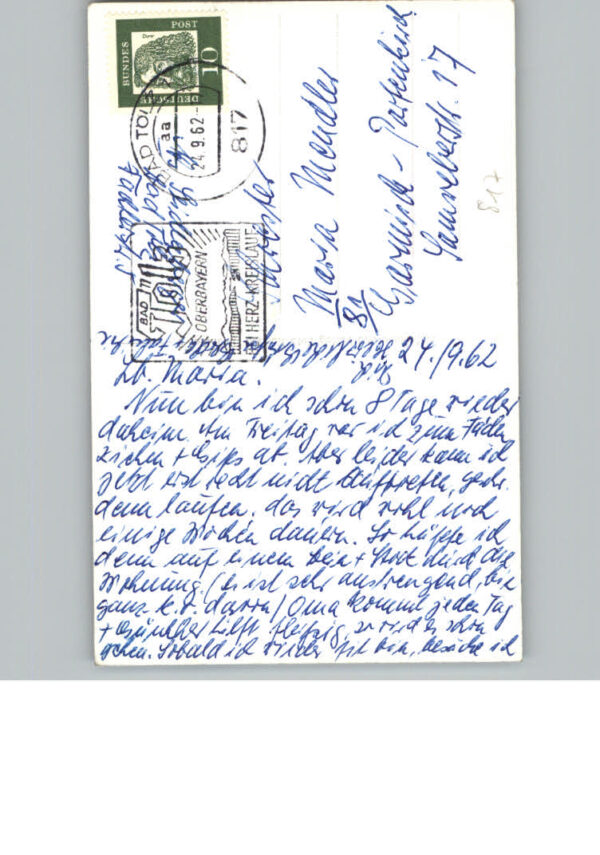 Dürer
DEUTSCHE
BUNDES
POST
10
BAD TÖLZ
aa
24.9.62
817
BAD TÖLZ
OBERBAYERN
BEI HERZ-KREISLAUF
Schwester
Maria Mendler
81 Garmisch-Partenkirch
17
817
24./9.62
Lb. Maria.
Nun bin ich schon 8 Tage wieder
daheim. Am Freitag war ich zum Fäden
ziehen + Gips ab. Aber leider kann ich
jetzt erst recht nicht auftreten, geschw.
denn laufen. das wird wohl noch
einige Wochen dauern. So hüpfe ich
denn auf einem Bein + Stock durch die
Wohnung (es ist sehr anstrengend, bin
ganz k.o. davon) Oma kommt jeden Tag
+ Günther hilft fleißig, so wird es schon
gehen. Sobald ich wieder fit bin, besuche ich